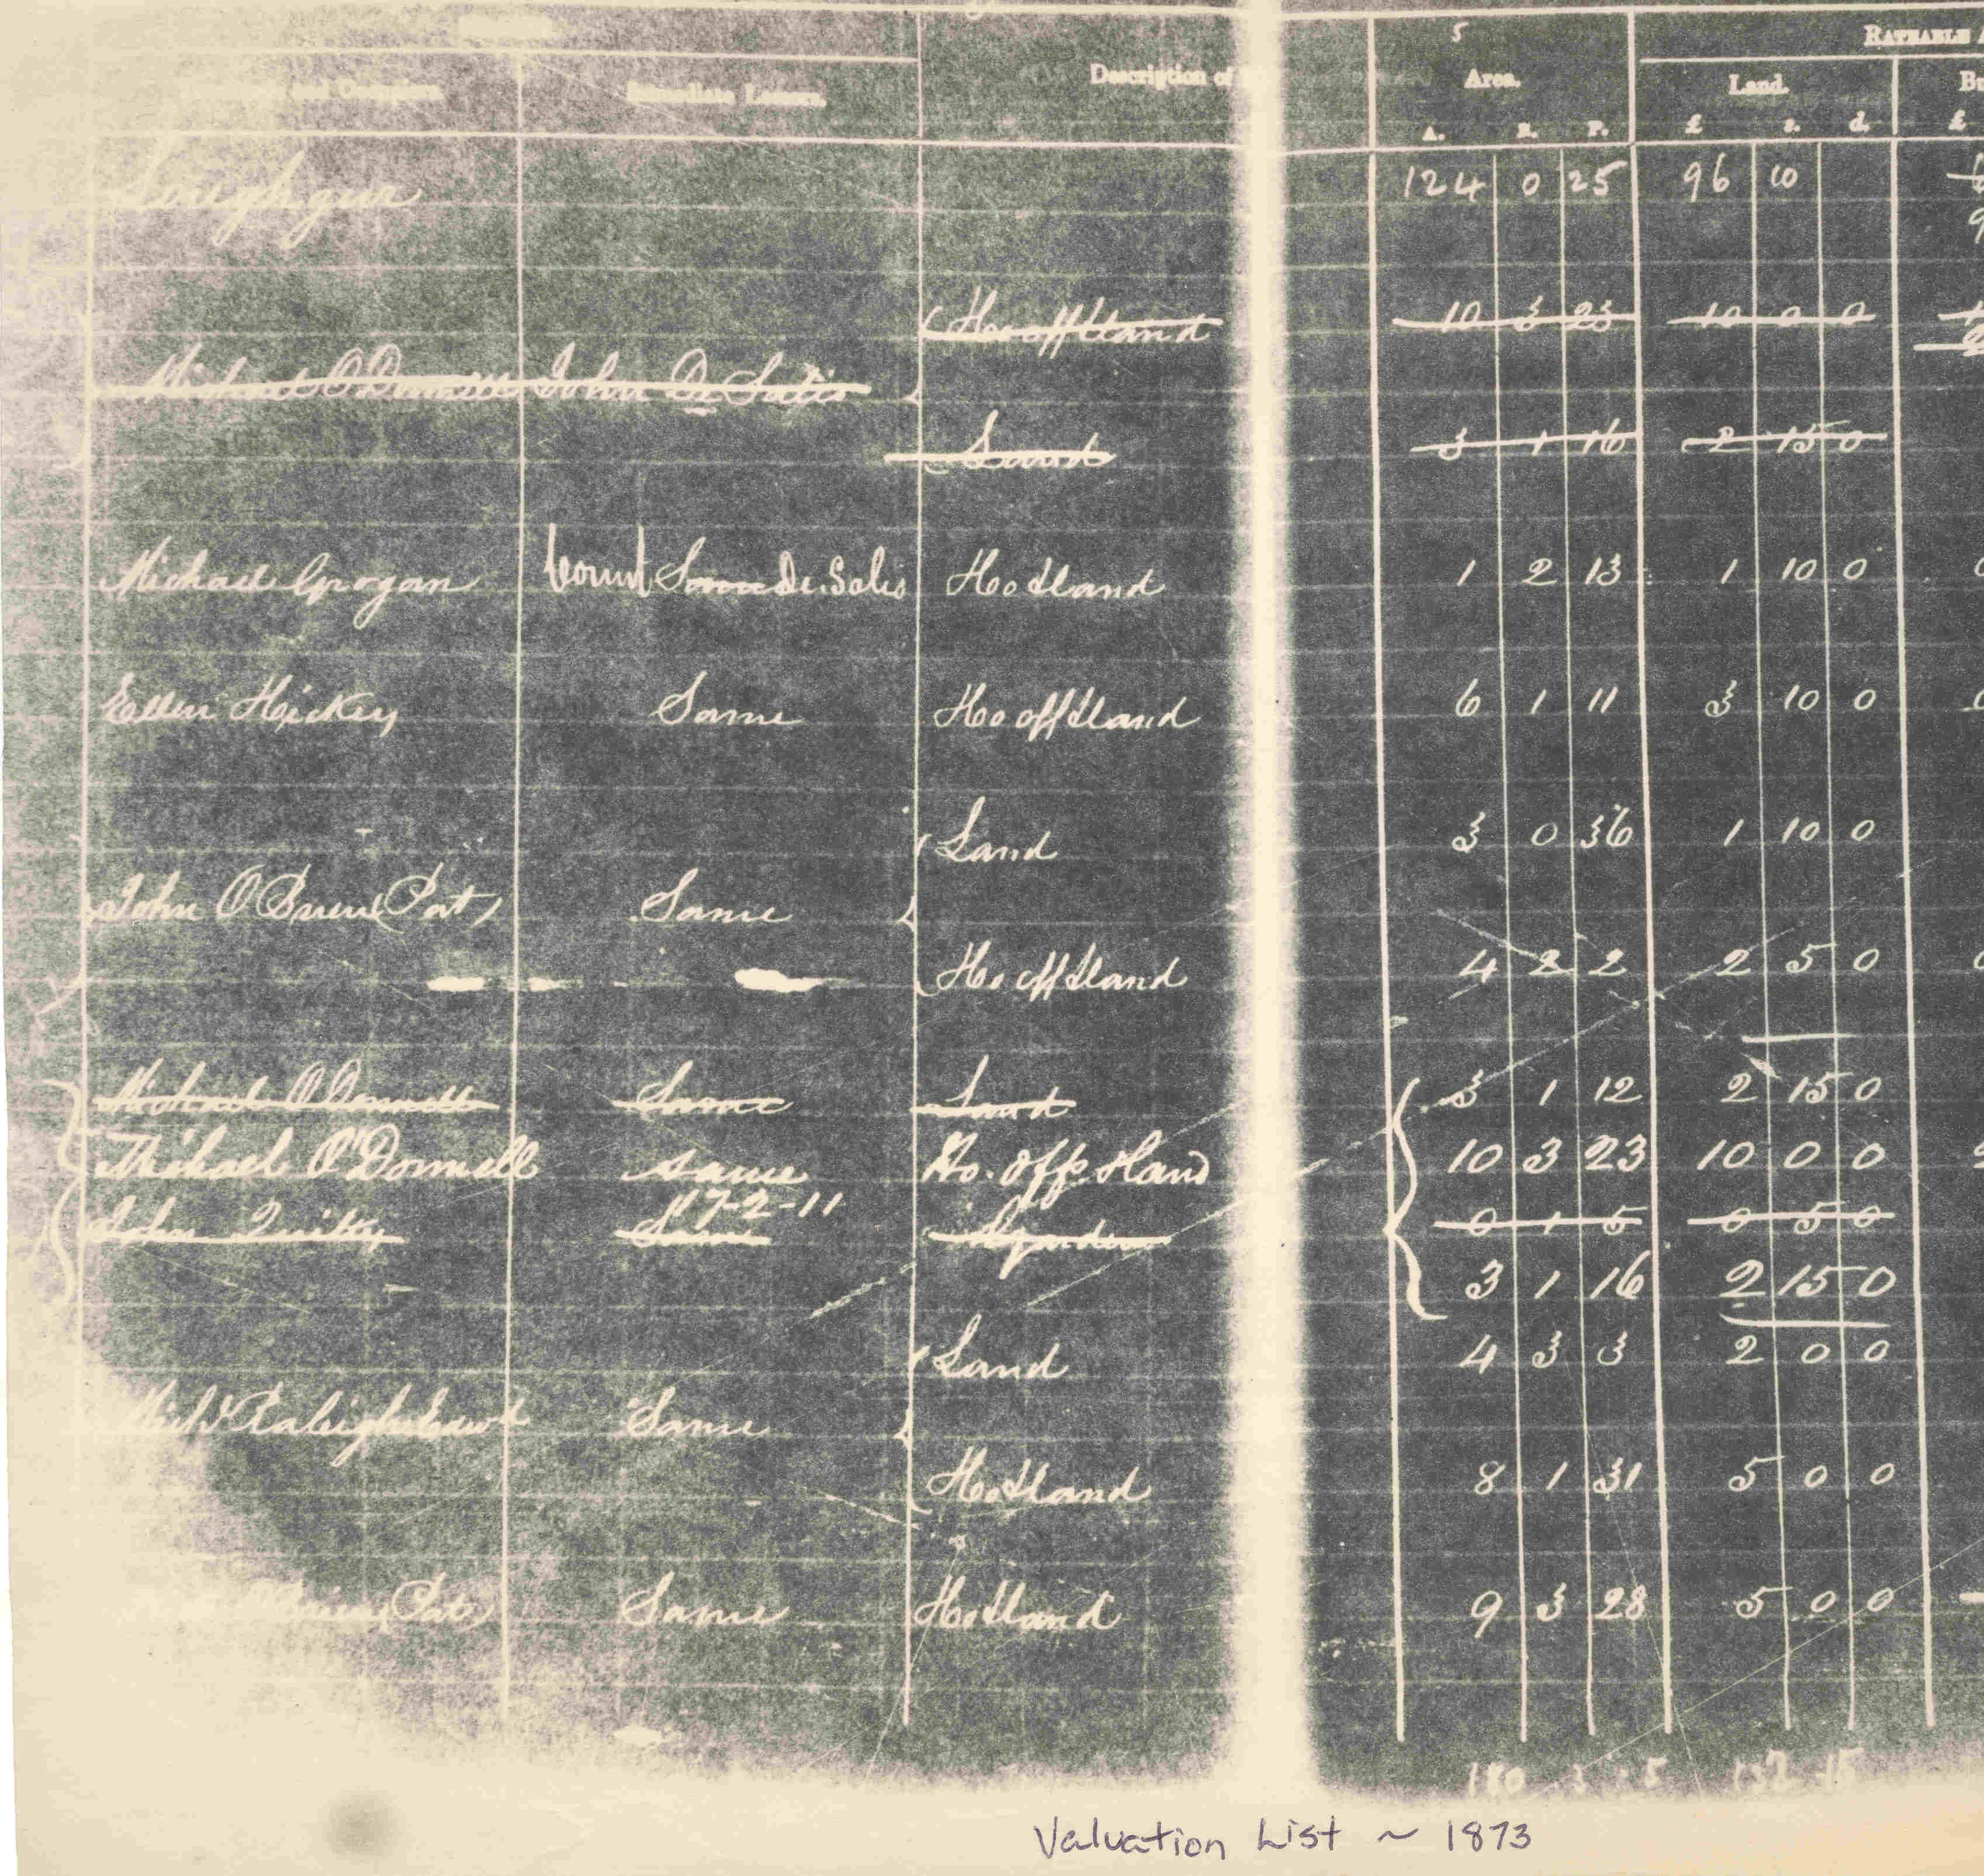 5 RATEABLE
and Occupiers. Immediate Lessors. Description of Area. Land.
A. R. P. £ s. d. £
Loughgur 124 0 25 96 10
9
Ho off & land 10 3 23 10 0 0
Michael O Donnell John De Salis
Land 3 1 16 2 15 0
Michael Grogan Count Same De Salis Ho & land 1 2 13 1 10 0
Ellen Hickey Same Ho off & land 6 1 11 3 10 0
Land 3 0 36 1 10 0
John O Brien (Pat) Same
Ho off & land 4 2 2 2 5 0
Michael O Donnell Same Land 3 1 12 2 15 0
Michael O'Donnell same Ho. offs. & land 10 3 23 10 0 0
17-2-11
John Same 0 1 5 0 5 0
3 1 16 2 15 0
Land 4 3 3 2 0 0
Raleigh Same
Ho & land 8 1 31 5 0 0
(Pat) Same Ho & land 9 3 28 5 0 0
180 3 5 132 15
Valuation List ~ 1873